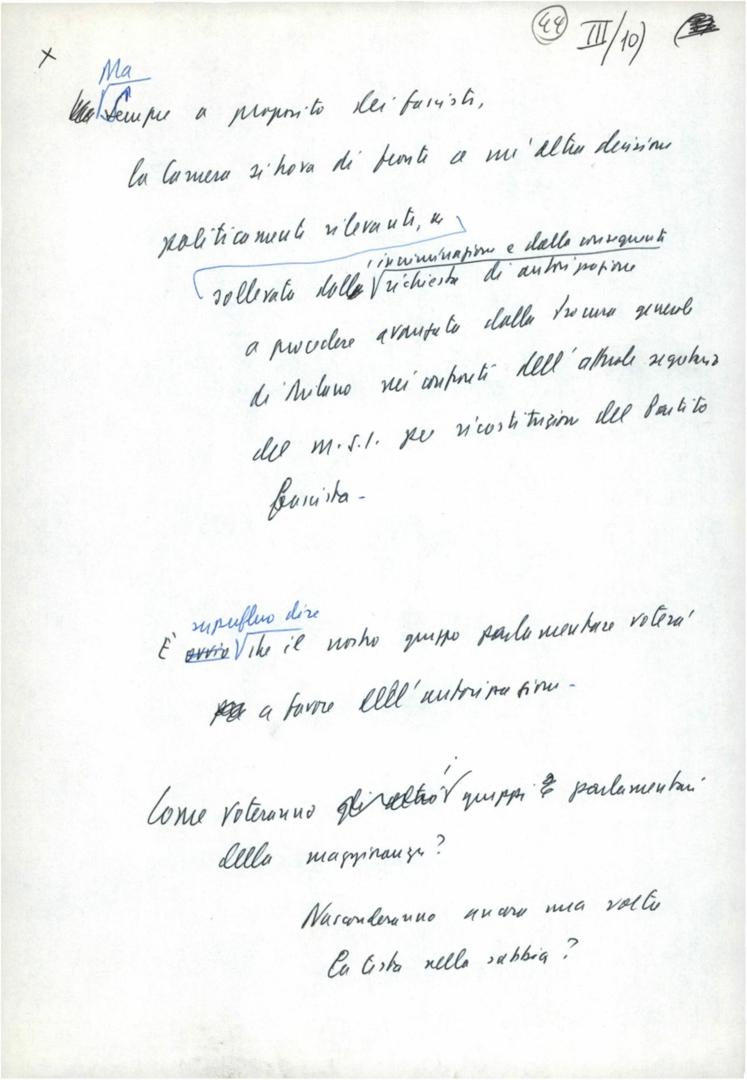 44 III/10)
x
Ma
sempre a proposito dei fascisti,
la Camera si trova di fronte a un'altra decisione
politicamente rilevante,
incriminazione e dalla conseguente
sollevata dalla richiesta di autorizzazione
a procedere avanzata dalla Procura generale
di Milano nei confronti dell'attuale segretario
del M.S.I. per ricostituzione del Partito
fascista -
superfluo dire
È ovvio che il nostro gruppo parlamentare voterà
a favore dell'autorizzazione -
Come voteranno gli altri i gruppi parlamentari
della maggioranza?
Nasconderanno ancora una volta
la testa nella sabbia?